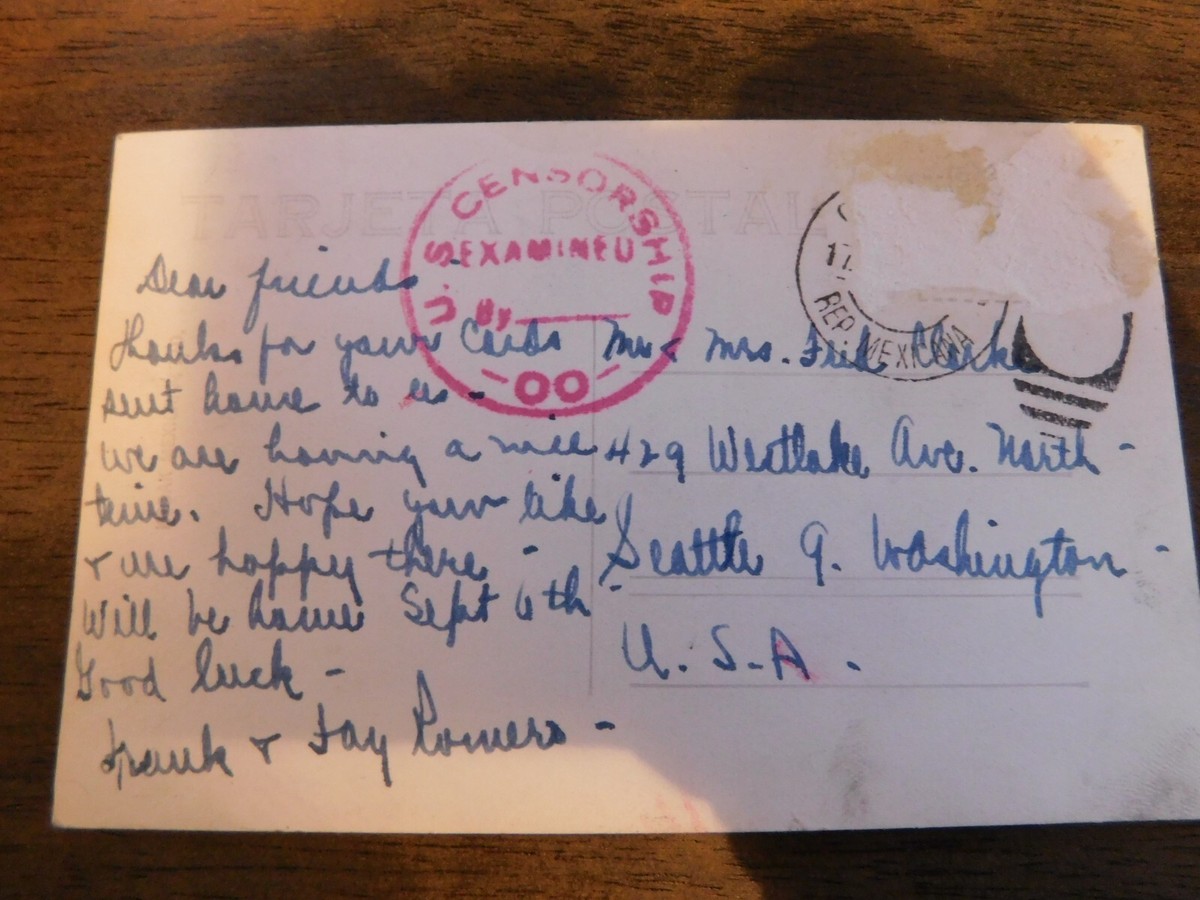 TARJETA POSTAL
U.S. CENSORSHIP
EXAMINED
By
00
17
REP. MEXICANA
Dear friends -
Thanks for your Cards
sent home to us -
We are having a nice
time. Hope your like
& are happy there -
Will be home Sept 6th -
Good luck -
Frank & Fay Romers -
Mr & Mrs. Fred Clarke
429 Westlake Ave. North -
Seattle 9. Washington -
U. S. A.